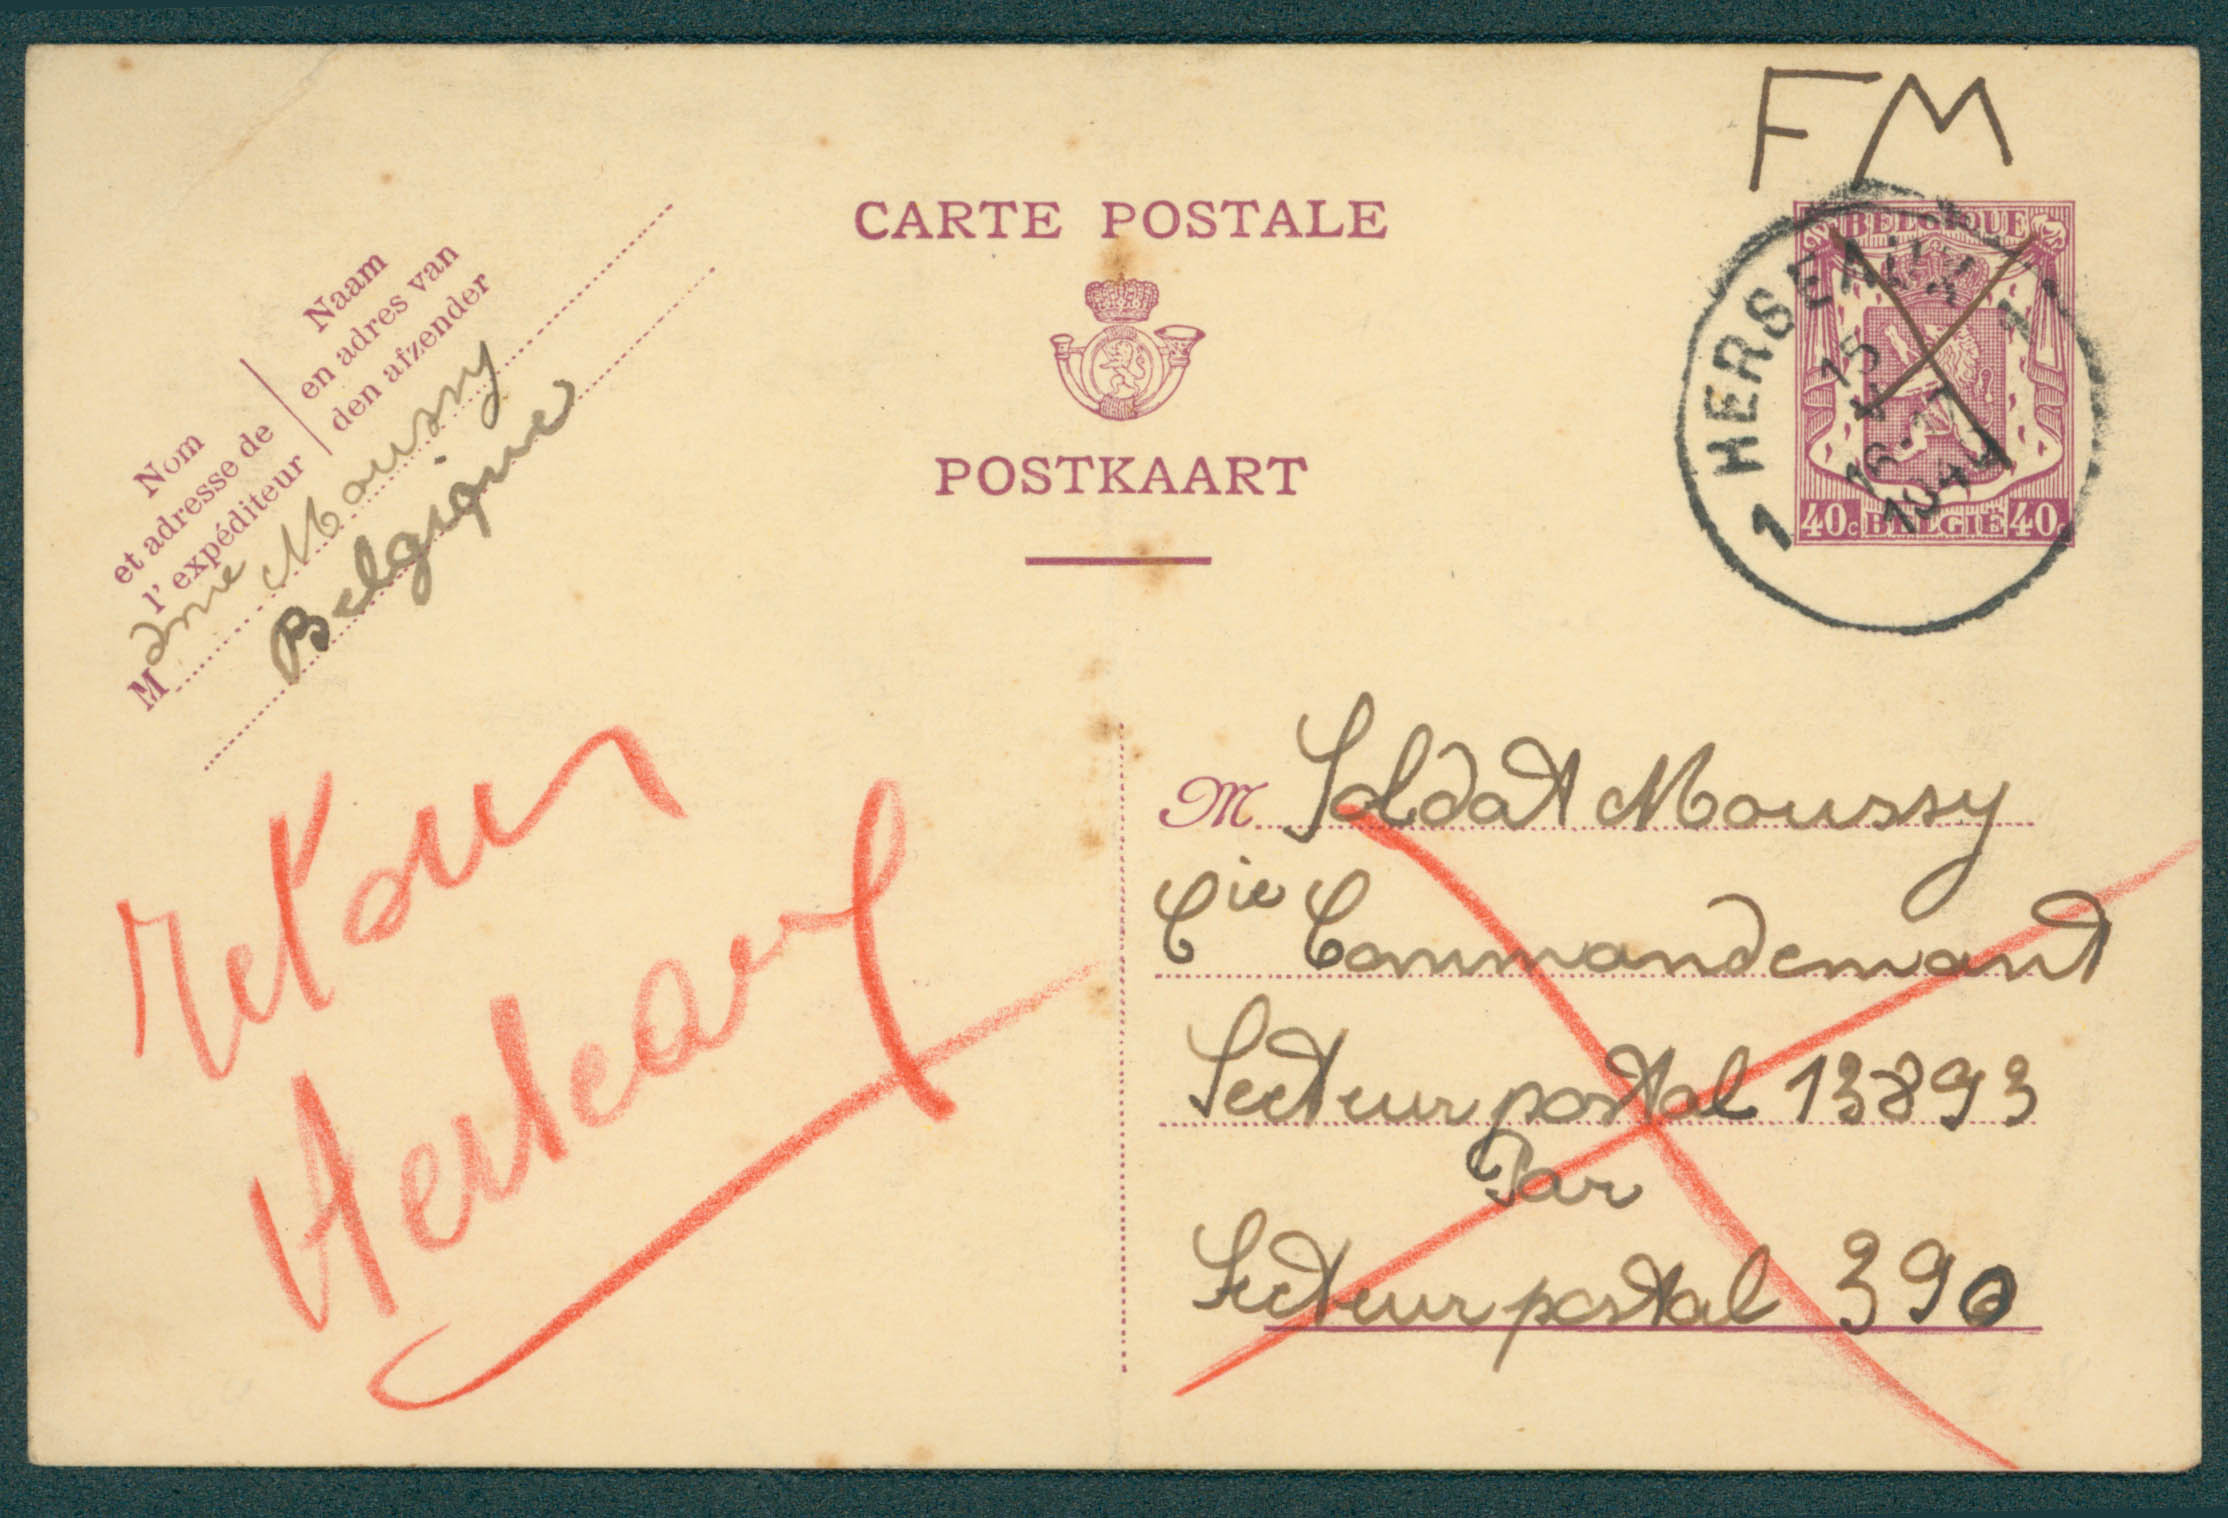 FM
CARTE POSTALE
POSTKAART
BELGIQUE
40c BELGIË 40c
1 HERSEAUX 1
15
16-17
Nom
et adresse de
l'expéditeur
Naam
en adres van
den afzender
Mdme Moussy
Belgique
retour
Herseaux
M Soldat Moussy
Cie Commandement
Secteur postal 13893
Par
Secteur postal 390